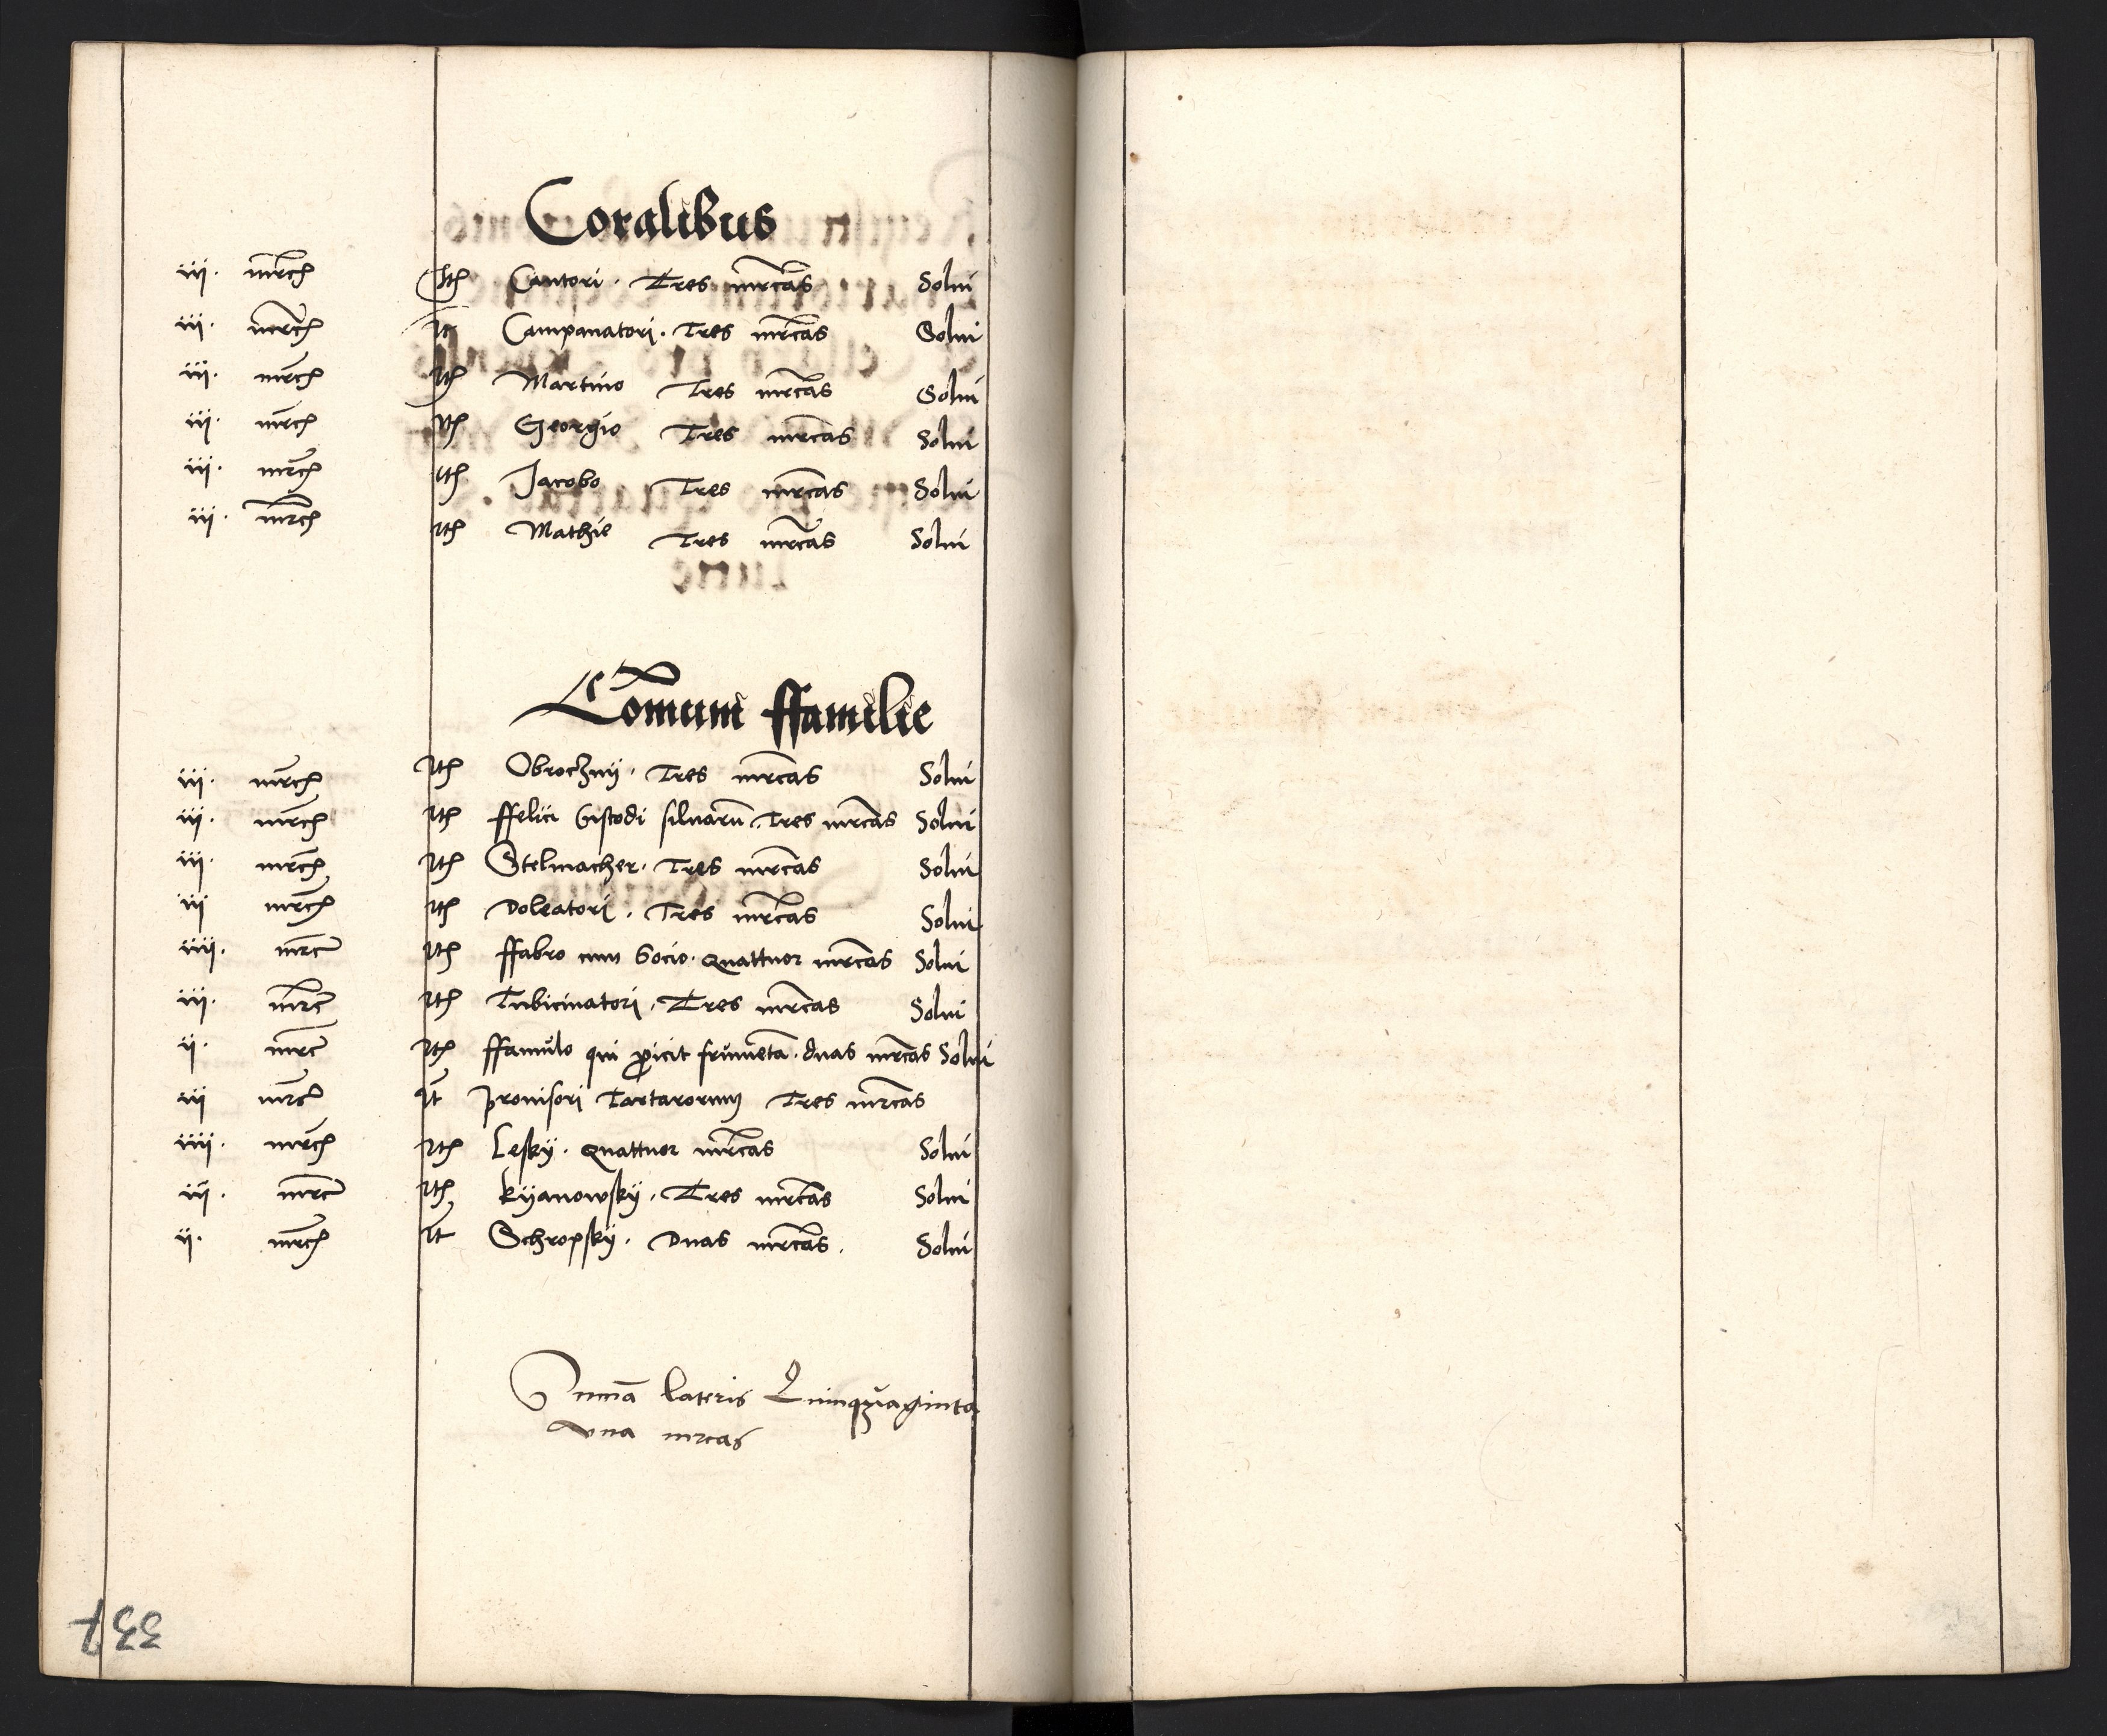 Coralibus
iij. mrc͡ę Itē Cantori. Tres mrcas Solui
iij. mrc͡ę Itē Campanatori. Tres mrcas Solui
iij. mrc͡ę Itē Martino Tres mrcas Solui
iij. mrc͡ę Itē Georgio Tres mrcas Solui
iij. mrc͡ę Itē Jacobo Tres mrcas Solui
iij. mrc͡ę Itē Mathie Tres mrcas Solui
Com̄uni ffamilie
iij. mrc͡ę Itē Obroczny. Tres mrcas Solui
iij. mrc͡ę Itē ffelici Custodi siluarū. Tres mrcas Solui
iij. mrc͡ę Itē Stelmacher. Tres mrcas Solui
iij mrc͡ę Itē Doleatori. Tres mrcas Solui
iiij. mrc͡ Itē ffabro cum Socio. quattuor mrcas Solui
iij. mrc͡ Itē Tubicinatori. Tres mrcas Solui
ij. mrc͡ Itē ffamulo qui ꝓicit frumēta. duas mrcas Solui
iij mrc͡ It̄ prouisori Tartarorum Tres mrcas
iiij. mrc͡ę Itē Lesky. quattuor mrcas Solui
iij. mrc͡ Itē kyanowsky. Tres mrcas Solui
ij. mrc͡ę It̄ Schropsky. Duas mrcas. Solui
Summā lateris Quinquaginta
vna mrcas
337